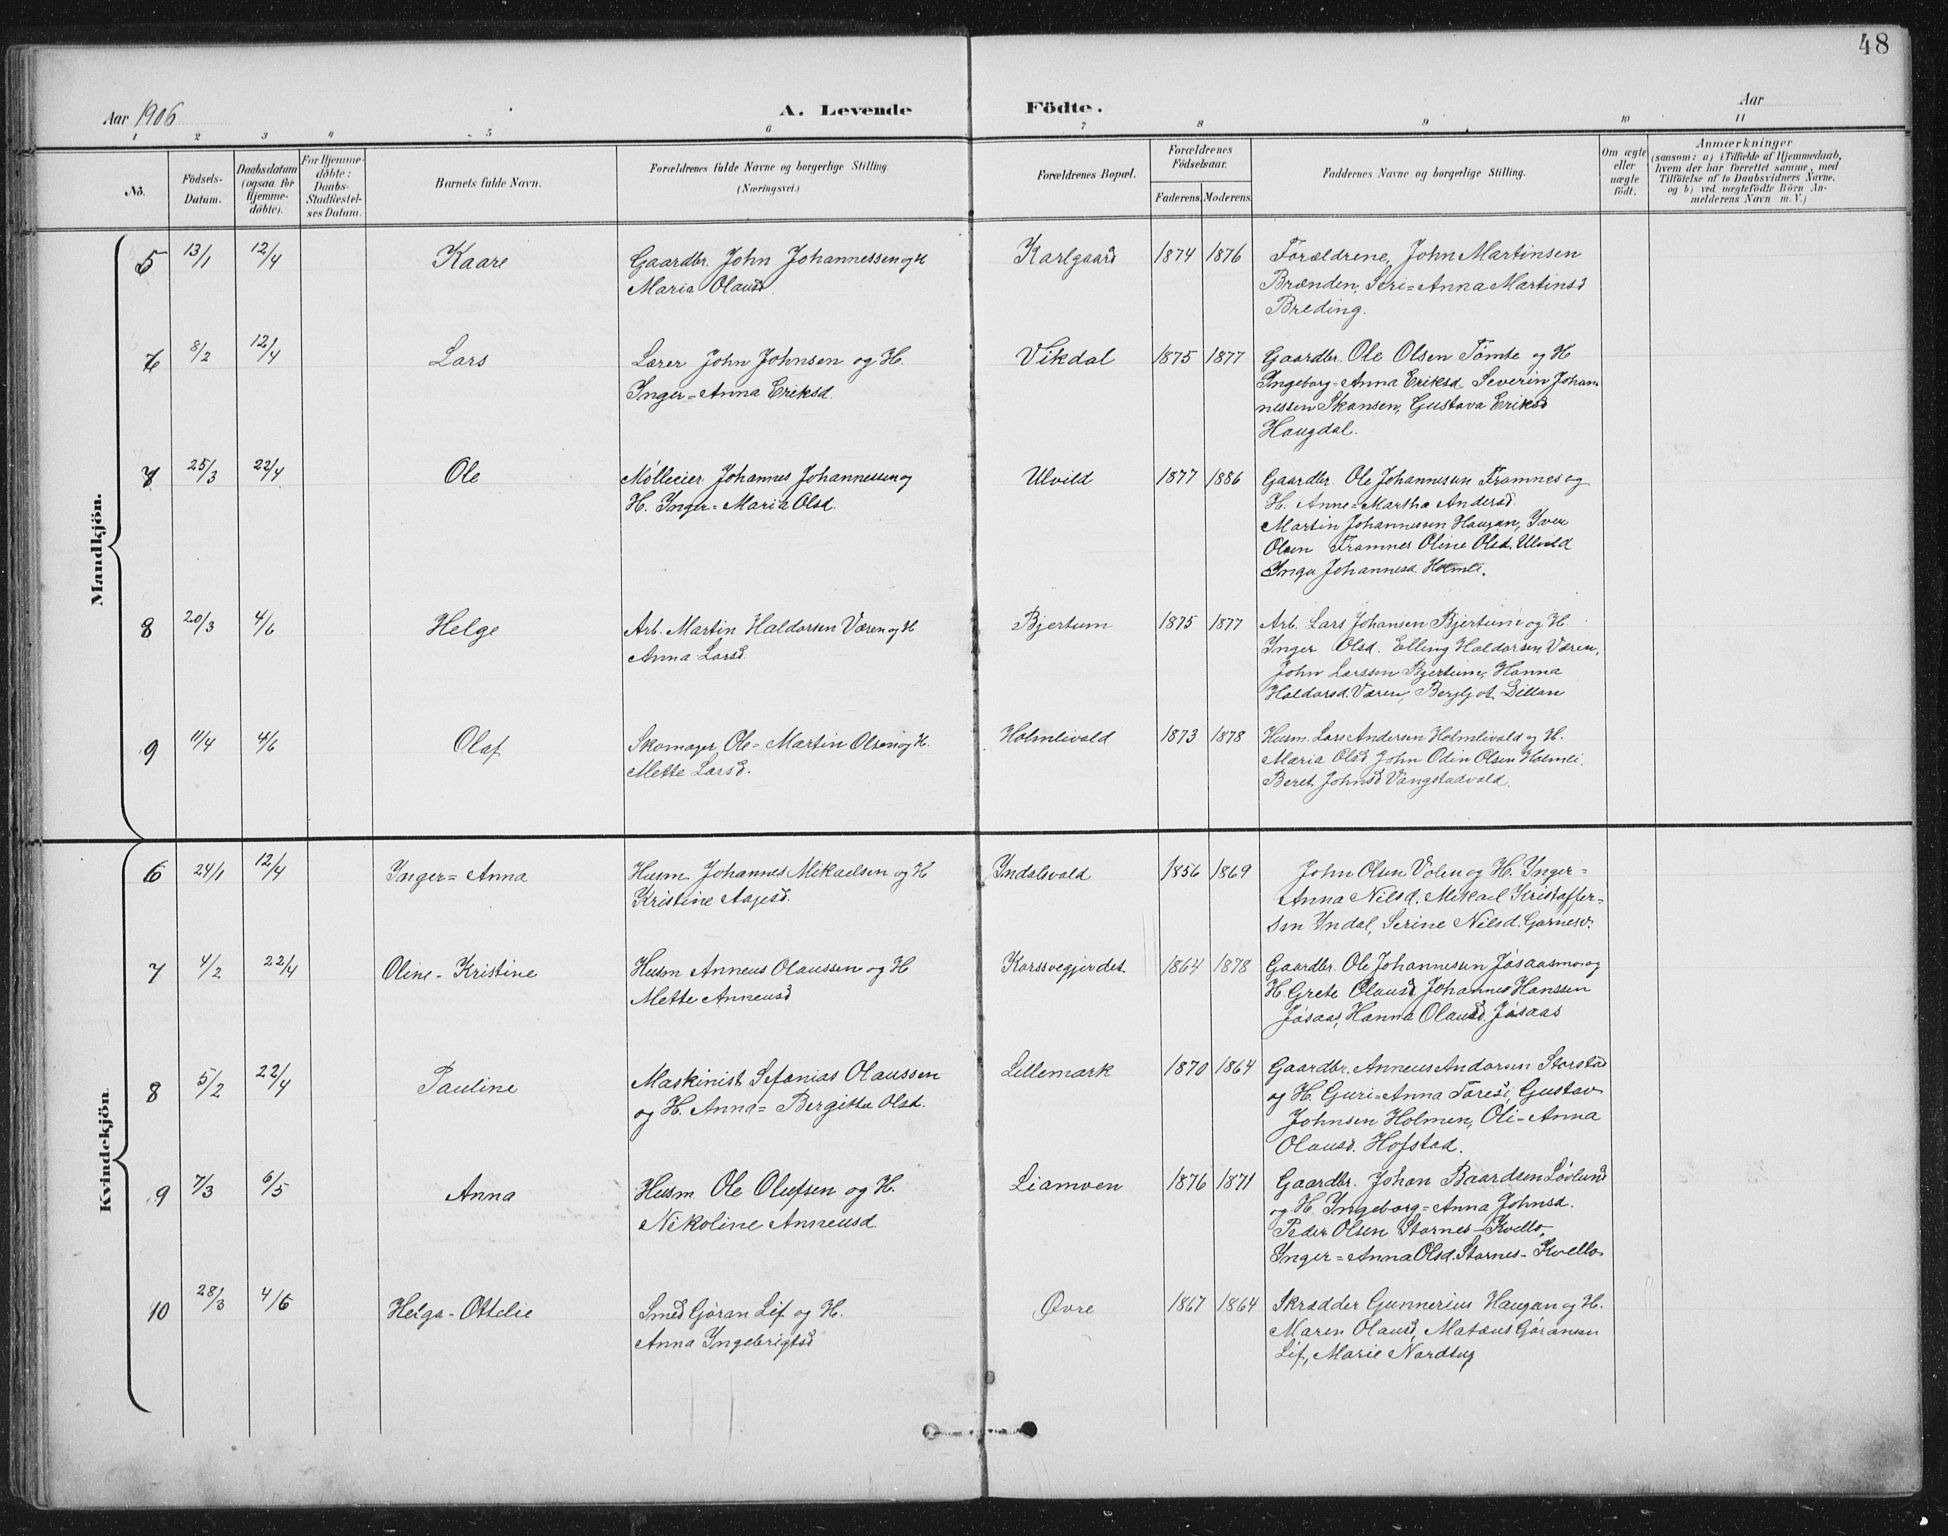 48
Aar 1906
A. Levende Födte.
Aar
1 2 3 4 5 6 7 8 9 10 11
No.
Födsels-
Datum.
Daabsdatum
(ogsaa for
Hjemme-
döbte).
For Hjemme-
döbte:
Daabs-
Stadfæstel-
ses Datum.
Barnets fulde Navn.
Forældrenes fulde Navne og borgerlige Stilling.
(Næringsvei.)
Forældrenes Bopæl.
Forældrenes
Födselsaar.
Faderens Moderens
Faddernes Navne og borgerlige Stilling.
Om ægte
eller
uægte
födt.
Anmærkninger
(saasom: a) i Tilfælde af Hjemmedaab,
hvem der har forrettet samme, med
Tilföielse af to Daabsvidners Navne.
og b) ved uægtefödte Börn An-
melderens Navn m. V.)
Mandkjön.
5 13/1 12/4 Kaare
Gaardbr. John Johannessen og H
Maria Olausd.
Karlgaard 1874 1876
Forældrene, John Martinsen
Brænden, Seri=Anna Martinsd
Breding.
6 8/2 12/4 Lars
Lærer John Johnsen og H.
Inger=Anna Eriksd.
Vikdal 1875 1877
Gaardbr. Ole Olsen Tømte og H
Ingeborg=Anna Eriksd. Severin Johan
nessen Skansen, Gustava Eriksd
Haugdal.
7 25/3 22/4 Ole
Mølleeier Johannes Johannessen og
H. Inger=Maria Olsd.
Ulvild 1877 1886
Gaardbr. Ole Johannessen Framnes og
H. Anne=Martha Andersd.
Martin Johannessen Haugan, Iver
Olsen Framnes Oline Olsd. Ulvild
Inga Johannesd. Holmli.
8 20/3 4/6 Helge
Arb. Martin Haldorsen Væren og H
Anna Larsd.
Bjertum 1875 1877
Arb. Lars Johansen Bjertum og H.
Inger Olsd. Elling Haldorsen Væren,
John Larssen Bjertum, Hanna
Haldorsd. Væren, Bergljot Dillan
9 11/4 4/6 Olaf
Skomager Ole=Martin Olsen og H.
Mette Larsd.
Holmlivald 1873 1878
Husm. Lars Andersen Holmlivald og H.
Maria Olsd John Odin Olsen Holmli.
Beret Johnsd Vangstadvald.
Kvindekjön.
6 24/1 12/4 Inger=Anna
Husm Johannes Mikaelsen og H
Kristine Aagesd.
Indalsvald 1856 1869
John Olsen Volen og H. Inger=
Anna Nilsd. Mikael Kristoffer-
sen Indal, Serine Nilsd. Garnesv.
7 4/2 22/4 Oline-Kristine
Husm Anneus Olaussen og H
Mette Anneusd
Korssvegjerdet 1864 1878
Gaardbr. Ole Johannessen Jøsaasmo og
H. Grete Olausd Johannes Hanssen
Jøsaas, Hanna Olausd. Jøsaas
8 5/2 22/4 Pauline
Maskinist Sefanias Olaussen
og H. Anna=Bergitta Olsd.
Lillemark 1870 1864
Gaardbr. Anneus Andersen Storstad
og H. Guri=Anna Toresd, Gustav
Johnsen Holmen, Oli-Anna
Olausd. Hofstad.
9 7/3 6/5 Anna
Husm Ole Olufsen og H.
Nikoline Anneusd
Liamoen 1876 1871
Gaardbr. Johan Baardsen Løvlund
og H. Ingeborg=Anna Johnsd.
Peder Olsen Stornes-Kvello,
Inger=Anna Olsd. Stornes-Kvello
10 28/3 4/6 Helga-Ottelie
Smed Gøran Lif og H.
Anna Ingebrigtsd
Øvre 1867 1864
Skrædder Gunnerius Haugan og H.
Maren Olausd, Matæus Gøransen
Lif, Marie Nordtug